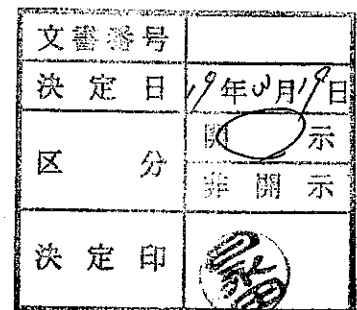 文書番号
決定日 19年3月19日
区分 開示
非開示
決定印